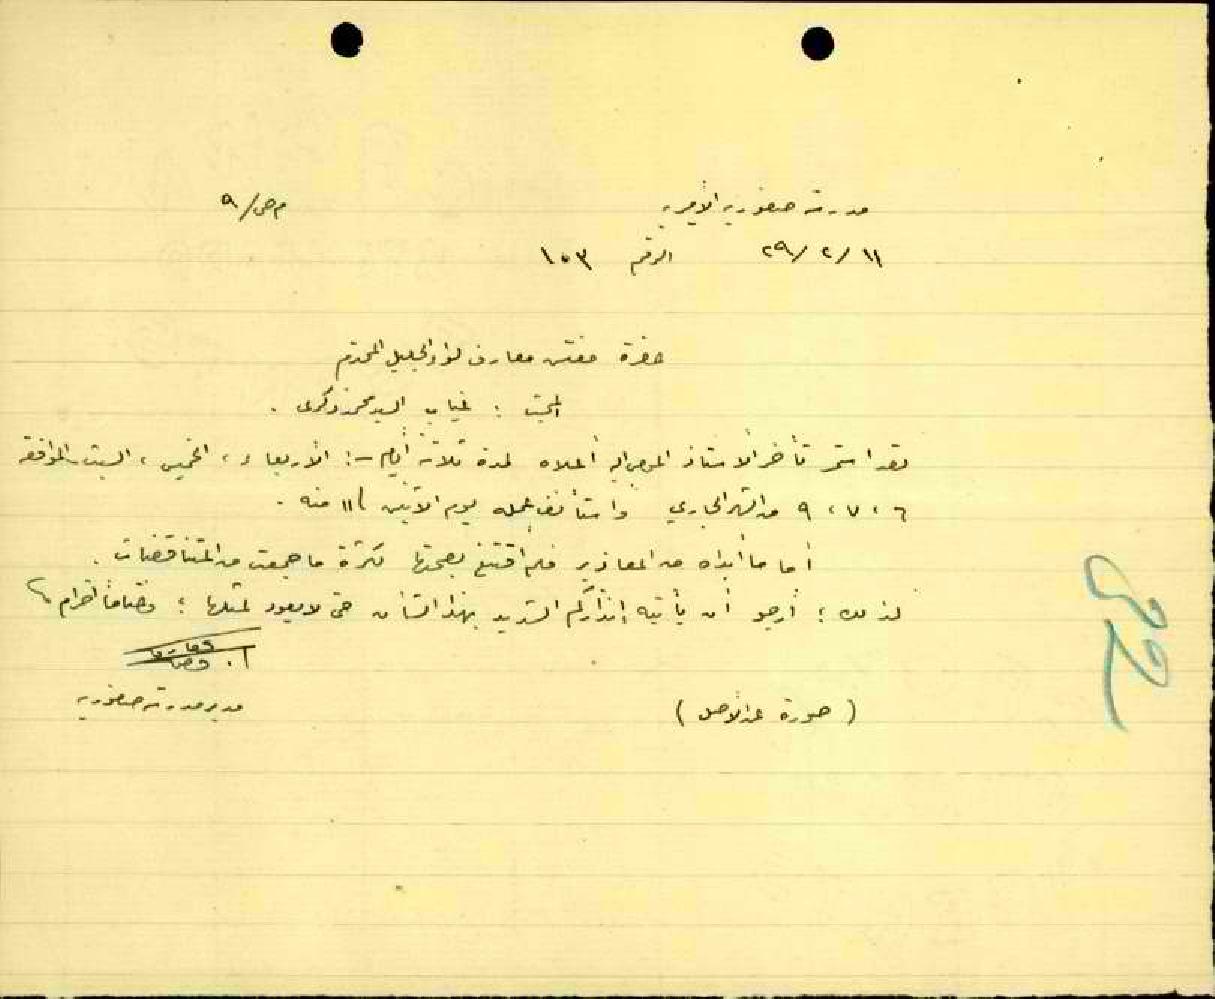 مدرسة صفورية الأميرية
م ص/٩
١١/٢/٢٩ الرقم ١٠٣
حضرة مفتش معارف لواء الجليل المحترم
المبحث : غياب السيد محمد زكريا .
لقد استمر تأخر الأستاذ المومى اليه أعلاه لمدة ثلاثة أيام -: الأربعاء ، الخميس ، السبت الموافقة
٦ ، ٧ ، ٩ من الشهر الجاري واستأنف عمله يوم الاثنين ١١ منه .
أما ما أبداه من المعاذير فلم أقتنع بصحتها لكثرة ما جمعت من المتناقضات .
لذلك ؛ أرجو أن يأتيه إنذاركم الشديد بهذا الشأن حتى لا يعود لمثلها ؛ وختاماً احترام
مدير مدرسة صفورية
( صورة عن الأصل )